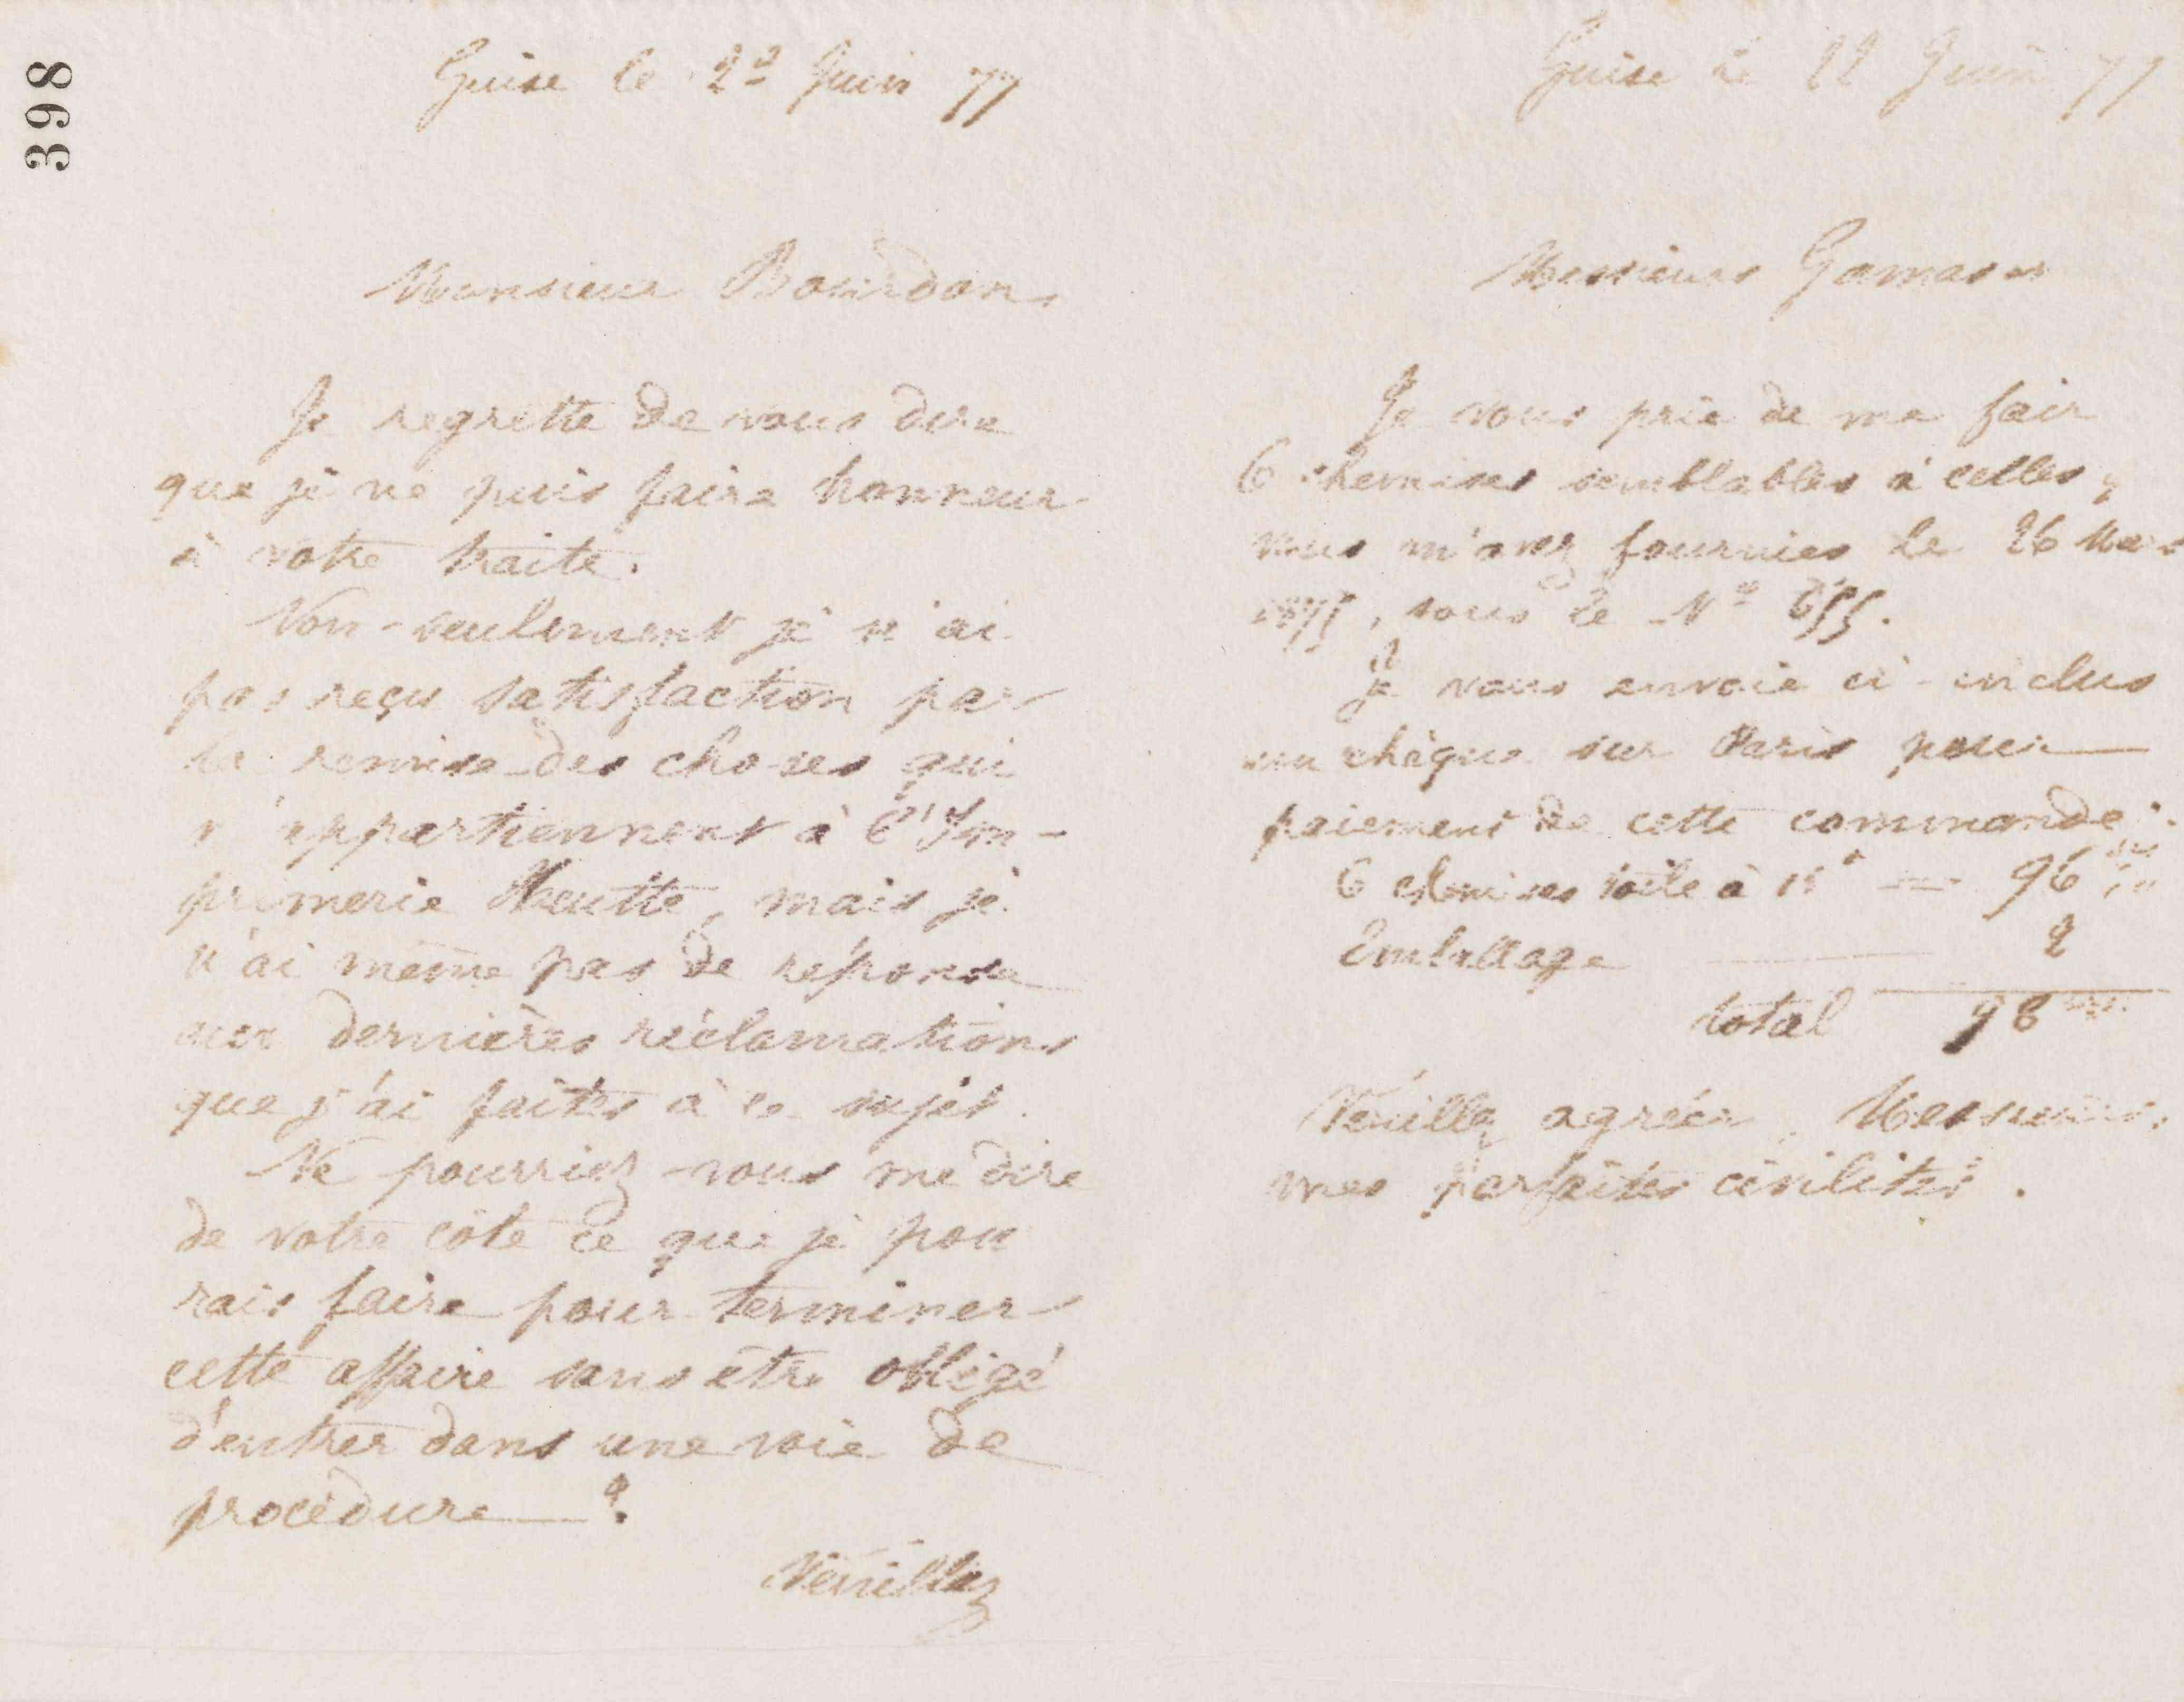 398
Guise le 22 Juin 77
Monsieur Bourdon,
Je regrette de vous dire
que je ne puis faire honneur
à votre traite.
Non-seulement je n'ai
pas reçu satisfaction par
la remise des choses qui
n'appartiennent à l'Im-
primerie , mais je
n'ai même pas de réponse
aux dernières réclamations
que j'ai faites à ce sujet.
Ne pourriez-vous me dire
de votre côté ce que je pou
rais faire pour terminer
cette affaire sans être obligé
d'entrer dans une voie de
procédure ?
Veuillez
Guise le 22 Juin 77
Messieurs
Je vous prie de me fair
6 chemises semblables à celles q
vous m'avez fournies le 26 Mars
, sous le Nº
Je vous envoie ci-inclus
un chèque sur Paris pour
paiement de cette commande.
6 chemises toile à = 96
Emballage 2
total 98
Veuillez agréer, Messieurs,
mes parfaites civilités.